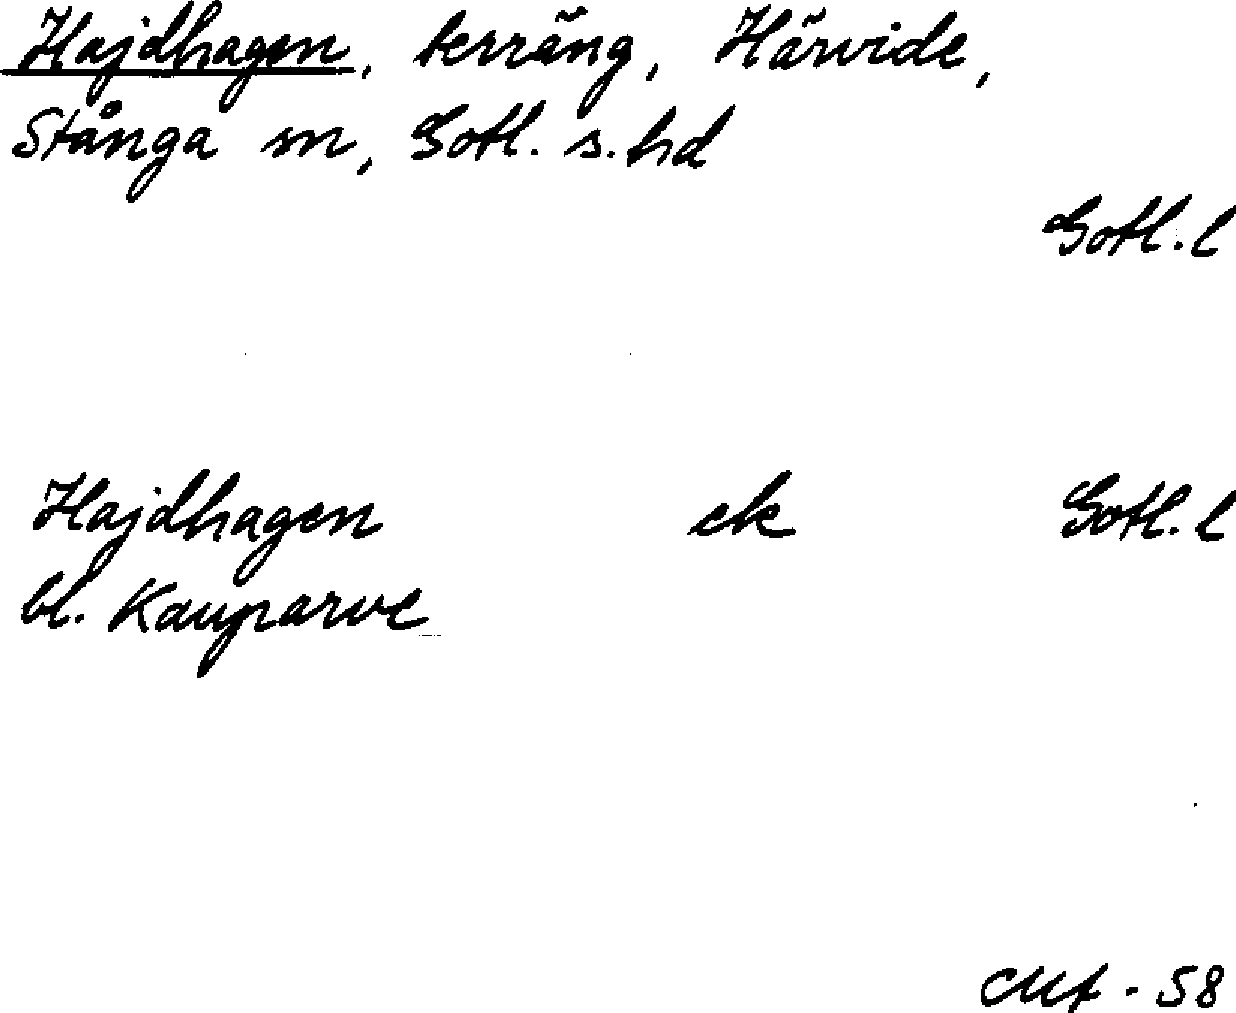 Hajdhagen, terräng, Härvide,
Stånga sn, Gotl. s. hd
Gotl. l
Hajdhagen ek Gotl. l
bl. Kauparve
- 58